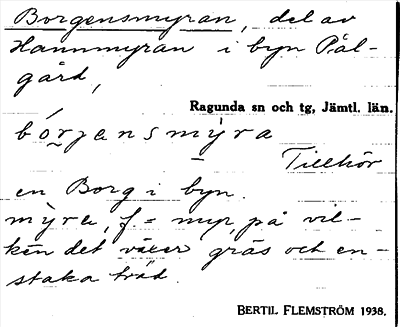 Borgensmyran, del av
Hannmyran i byn Pål-
gård,
Ragunda sn och tg, Jämtl. län.
bórjansmỳra
Tillhör
en Borg i byn.
mỳra, f. = myr, på vil-
ken det växer gräs och en-
staka träd.
BERTIL FLEMSTRÖM 1938.